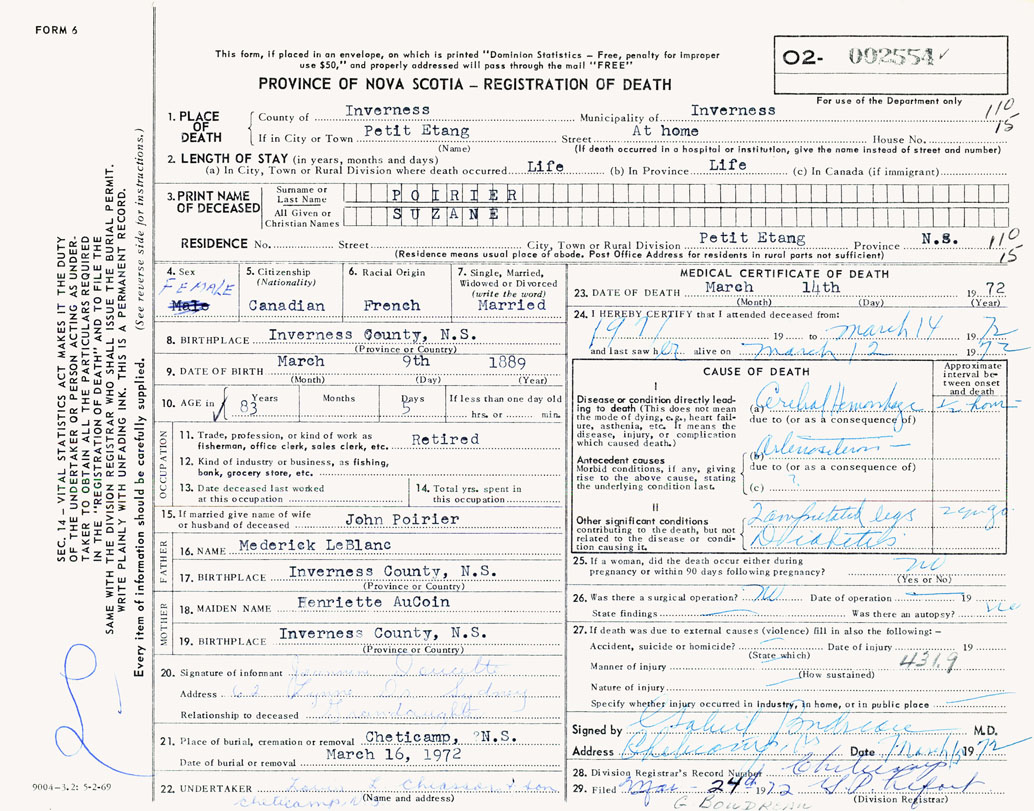 FORM 6
This form, if placed in an envelope, on which is printed "Dominion Statistics – Free, penalty for improper
use $50," and properly addressed will pass through the mail "FREE"
O2- 002554 ✓
For use of the Department only
PROVINCE OF NOVA SCOTIA – REGISTRATION OF DEATH
110
15
1. PLACE OF DEATH
County of Inverness Municipality of Inverness
If in City or Town Petit Etang Street At home House No.
(Name) (If death occurred in a hospital or institution, give the name instead of street and number)
2. LENGTH OF STAY (in years, months and days)
(a) In City, Town or Rural Division where death occurred Life (b) In Province Life (c) In Canada (if immigrant)
3. PRINT NAME OF DECEASED
Surname or Last Name POIRIER
All Given or Christian Names SUZANE
RESIDENCE No. Street City, Town or Rural Division Petit Etang Province N.S. 110
15
(Residence means usual place of abode. Post Office Address for residents in rural parts not sufficient)
4. Sex
FEMALE
Male
5. Citizenship
(Nationality)
Canadian
6. Racial Origin
French
7. Single, Married,
Widowed or Divorced
(write the word)
Married
8. BIRTHPLACE Inverness County, N.S.
(Province or Country)
9. DATE OF BIRTH March 9th 1889
(Month) (Day) (Year)
10. AGE in Years Months Days If less than one day old
83 5 hrs. or min.
OCCUPATION
11. Trade, profession, or kind of work as
fisherman, office clerk, sales clerk, etc. Retired
12. Kind of industry or business, as fishing,
bank, grocery store, etc.
13. Date deceased last worked
at this occupation
14. Total yrs. spent in
this occupation
15. If married give name of wife
or husband of deceased John Poirier
FATHER
16. NAME Mederick LeBlanc
17. BIRTHPLACE Inverness County, N.S.
(Province or Country)
MOTHER
18. MAIDEN NAME Henriette AuCoin
19. BIRTHPLACE Inverness County, N.S.
(Province or Country)
20. Signature of informant
Address Lynne Dr. Sydney
Relationship to deceased Grandaughter
21. Place of burial, cremation or removal Cheticamp, N.S.
Date of burial or removal March 16, 1972
22. UNDERTAKER L. Chiasson & son
cheticamp
(Name and address)
MEDICAL CERTIFICATE OF DEATH
23. DATE OF DEATH March 14th 1972
(Month) (Day) (Year)
24. I HEREBY CERTIFY that I attended deceased from:
1971 19 to March 14 1972
and last saw her alive on March 12 1972
CAUSE OF DEATH
Approximate
interval be-
tween onset
and death
I
Disease or condition directly lead-
ing to death (This does not mean
the mode of dying, e.g., heart fail-
ure, asthenia, etc. It means the
disease, injury, or complication
which caused death.)
(a) Cerebral Hemorrhage
due to (or as a consequence of)
Antecedent causes
Morbid conditions, if any, giving
rise to the above cause, stating
the underlying condition last.
(b)
due to (or as a consequence of)
(c) ?
II
Other significant conditions
contributing to the death, but not
related to the disease or condi-
tion causing it.
2 amputated legs
Diabetes
25. If a woman, did the death occur either during
pregnancy or within 90 days following pregnancy? no
(Yes or No)
26. Was there a surgical operation? no Date of operation 19
State findings Was there an autopsy? no
27. If death was due to external causes (violence) fill in also the following: –
Accident, suicide or homicide? Date of injury 19
(State which)
Manner of injury 431.9
(How sustained)
Nature of injury
Specify whether injury occurred in industry, in home, or in public place
Signed by M.D.
Address Cheticamp Date March 1972
28. Division Registrar's Record Number Cheticamp
29. Filed Mar – 24th 1972
(Division Registrar)
G. BOUDREAU
SEC. 14 – VITAL STATISTICS ACT MAKES IT THE DUTY
OF THE UNDERTAKER OR PERSON ACTING AS UNDER-
TAKER TO OBTAIN ALL THE PARTICULARS REQUIRED
IN THE "REGISTRATION OF DEATH" AND TO FILE THE
SAME WITH THE DIVISION REGISTRAR WHO SHALL ISSUE THE BURIAL PERMIT.
WRITE PLAINLY WITH UNFADING INK. THIS IS A PERMANENT RECORD.
Every item of information should be carefully supplied. (See reverse side for instructions.)
9004-3.2: 5-2-69